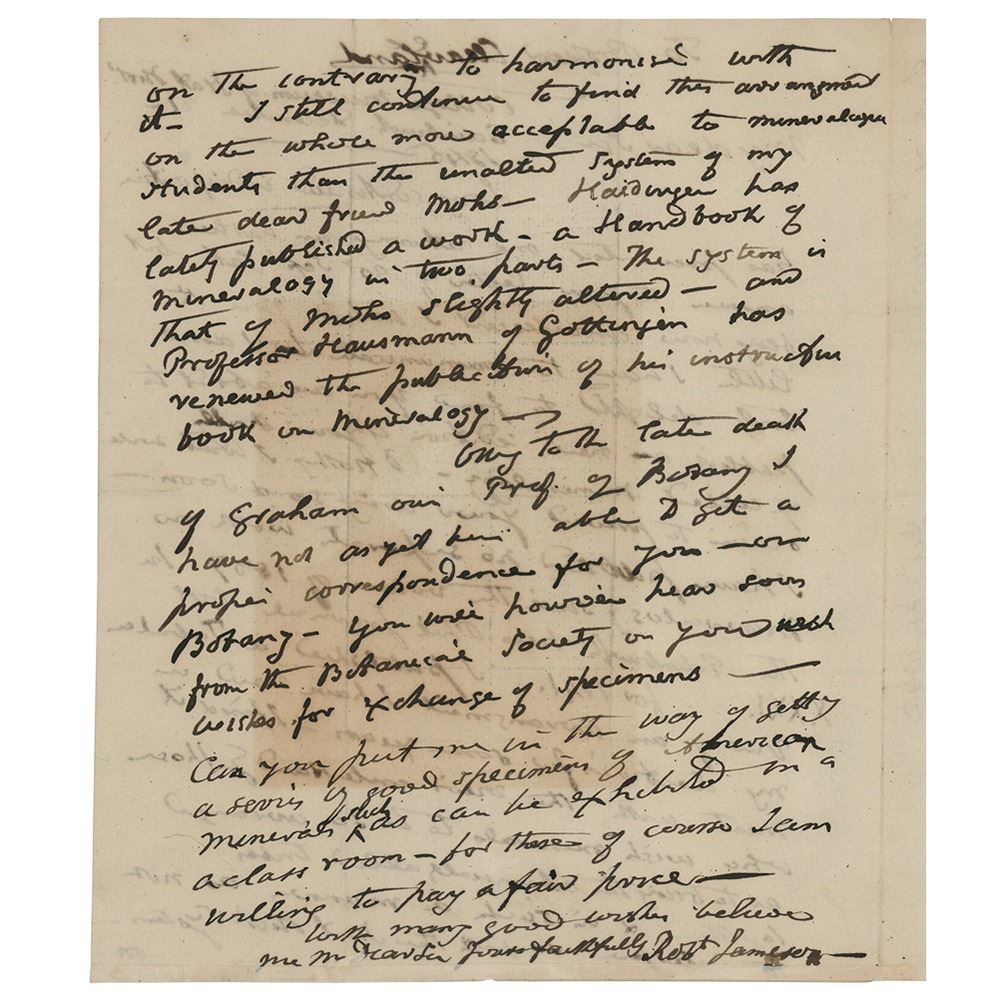 on the contrary to harmonise with
it— I still continue to find this arrangmed
on the whole more acceptable to mineralogica
students than the unalterd system of my
late dear friend Mohs— Haidinger has
lately published a work— a Handbook of
mineralogy in two parts— The system is
that of Mohs slightly altered— and
Professor Hausmann of Gottingen has
renewed the publication of his instruction
book on Mineralogy —
Owg to the late death
of Graham our Prof. of Botany I
have not as yet been able to get a
proper correspondence for you —on
Botany— you will however hear soon
from the Botanical Society on your
wishes for exchange of specimens —
Can you put me in the way of gettg
a series of good specimens of American
minerals such as can be exhibited in a
a class room— for these of course I am
willing to pay a fair price—
with many good wishes believe
me My Dear Sir Yours faithfully Robt Jameson—